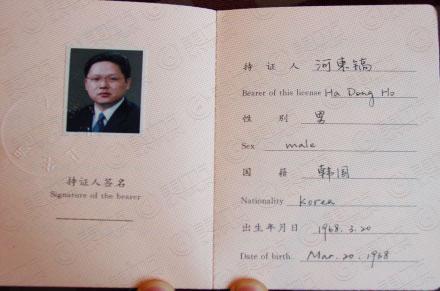 持证人签名
Signature of the bearer
持 证 人 河東鎬
Bearer of this license Ha Dong Ho
性 别 男
Sex male
国 籍 韩国
Nationality Korea
出生年月日 1968.3.20
Date of birth. Mar. 20. 1968